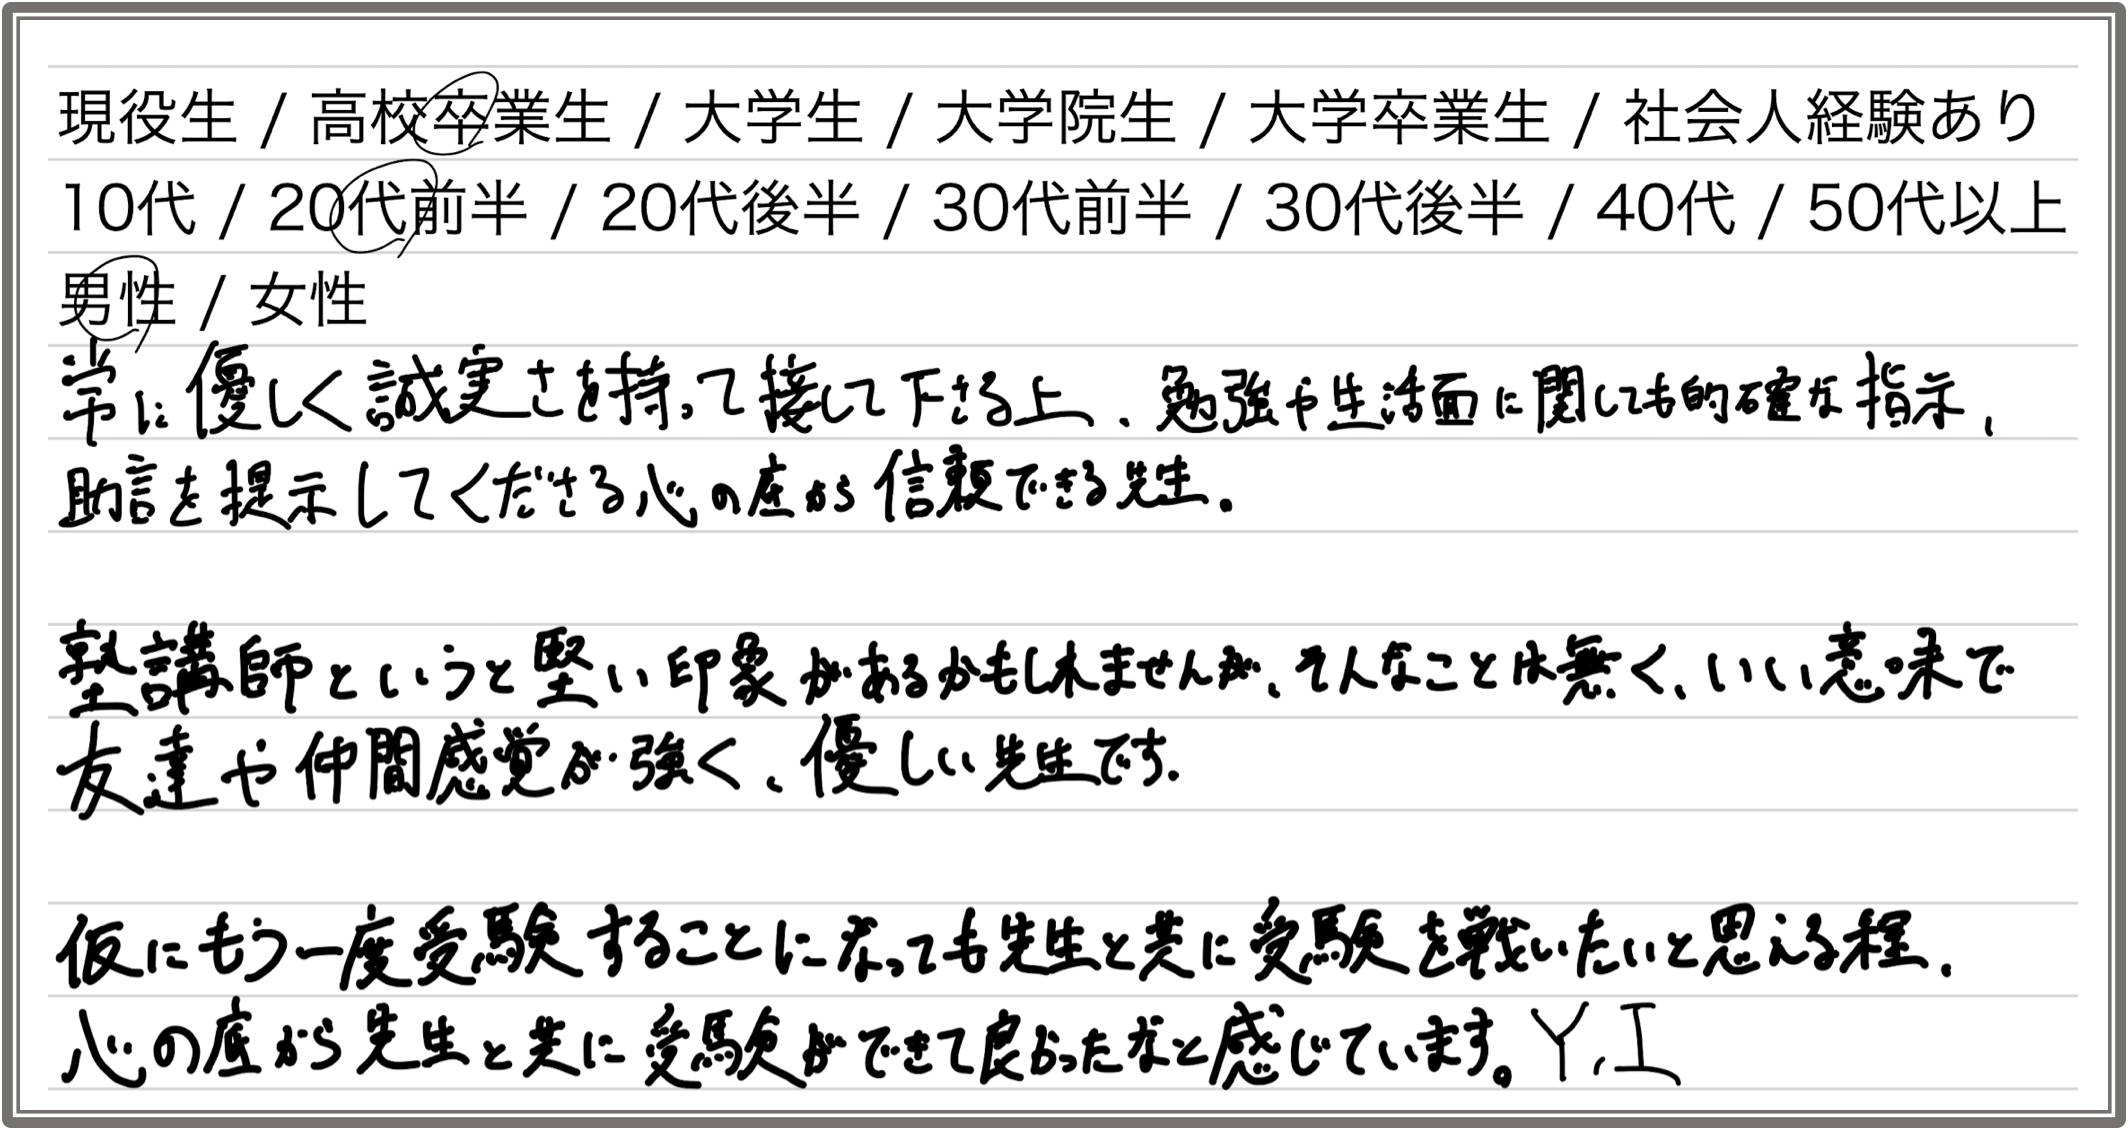 現役生 / 高校卒業生 / 大学生 / 大学院生 / 大学卒業生 / 社会人経験あり
10代 / 20代前半 / 20代後半 / 30代前半 / 30代後半 / 40代 / 50代以上
男性 / 女性
常に優しく誠実さを持って接して下さる上、勉強や生活面に関しても的確な指示、
助言を提示してくださる心の底から信頼できる先生。
塾講師というと堅い印象があるかもしれませんが、そんなことは無く、いい意味で
友達や仲間感覚が強く、優しい先生です。
仮にもう一度受験することになっても先生と共に受験を戦いたいと思える程、
心の底から先生と共に受験ができて良かったなと感じています。Y.I